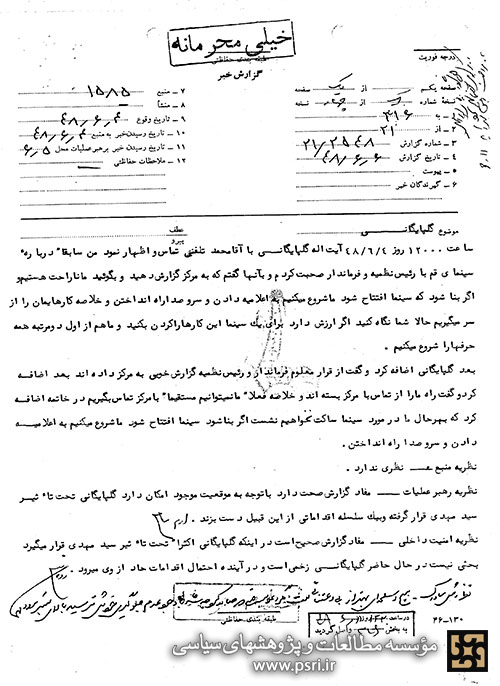 خیلی محرمانه
طبقه بندی حفاظتی
گزارش خبر
درجه فوریت
صفحه یکم از یک صفحه
نسخه شماره یک از چهار نسخه
۱ - به ۳۱۶
۲ - از ۲۱
۳ - شماره گزارش ۲۱/۳۵۴۸
۴ - تاریخ گزارش ۴۸/۶/۶
۵ - پیوست
۶ - گیرندگان خبر
۷ - منبع ۱۵۸۵
۸ - منشأ
۹ - تاریخ وقوع ۴۸/۶/۴
۱۰ - تاریخ رسیدن خبر به منبع ۴۸/۶/۴
۱۱ - تاریخ رسیدن خبر برهبر عملیات محل ۶/۵
۱۲ - ملاحظات حفاظتی
موضوع گلپایگانی
عطف
پیرو
ساعت ۱۲۰۰۰ روز ۴۸/۶/۴ آیت اله گلپایگانی با آقامحمد تلفنی تماس و اظهار نمود من سابقا" درباره"
سینمای قم با رئیس نظمیه و فرماندار صحبت کردم و بآنها گفتم که به مرکز گزارش دهید و بگوئید ما ناراحت هستیم و
اگر بنا شود که سینما افتتاح شود ما شروع میکنیم به اعلامیه دادن و سروصدا راه انداختن و خلاصه کارهایمان را از
سر میگیریم حالا شما نگاه کنید اگر ارزش دارد برای یک سینما این کارها را کردن بکنید و ما هم از اول دومرتبه همه
حرفها را شروع میکنیم .
بعد گلپایگانی اضافه کرد و گفت از قرار معلوم فرماندار و رئیس نظمیه گزارش خوبی به مرکز داده اند بعد اضافه
کرد و گفت راه ما را از تماس با مرکز بسته اند و خلاصه فعلا" ما نمیتوانیم مستقیما" با مرکز تماس بگیریم در خاتمه اضافه
کرد که بهرحال ما در مورد سینما ساکت نخواهیم نشست اگر بنا شود سینما افتتاح شود ما شروع میکنیم به اعلامیه
دادن و سروصدا راه انداختن .
نظریه منبع — نظری ندارد .
نظریه رهبر عملیات — مفاد گزارش صحت دارد با توجه به موقعیت موجود امکان دارد گلپایگانی تحت تا" ثیر
سید مهدی قرار گرفته و بیک سلسله اقداماتی از این قبیل دست بزند .
نظریه امنیت داخلی — مفاد گزارش صحیح است در اینکه گلپایگانی اکثرا" تحت تا" ثیر سید مهدی قرار میگیرد
بحثی نیست در حال حاضر گلپایگانی زخمی است و در آینده احتمال اقدامات حاد از وی میرود .
طبقه بندی حفاظتی
۳۶-۱۳۰
مؤسسه مطالعات و پژوهشهای سیاسی
www.psri.ir